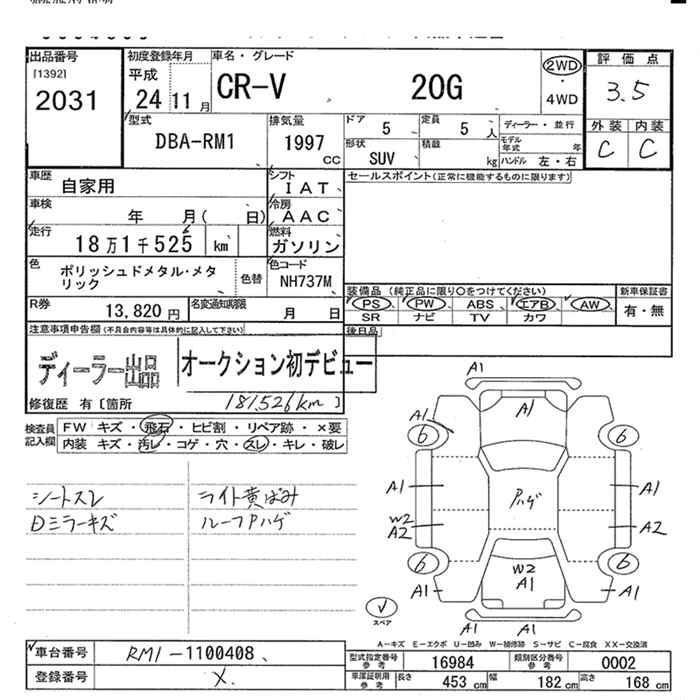 出品番号
[1392]
2031
初度登録年月
平成
24 11 月
車名・グレード
CR-V 20G
2WD
・
4WD
評価点
3.5
外装 内装
C C
型式
DBA-RM1
排気量
1997
CC
ドア 5
定員 5 人
ディーラー・並行
形状
SUV
積載 kg
モデル年式 年
ハンドル 左・右
車歴
自家用
シフト
IAT
セールスポイント(正常に機能するものに限ります)
車検
年 月( 日)
冷房
AAC
走行
18万1千525 km
燃料
ガソリン
色
ポリッシュドメタル・メタリック
色替
色コード
NH737M
装備品 (純正品に限り○をつけてください)
PS PW ABS エアB AW
SR ナビ TV カワ
新車保証書
有・無
R券
13,820 円
名変通知期限
月 日
後日品
注意事項申告欄(不具合内容等は具体的に記入して下さい)
ディーラー出品
オークション初デビュー
修復歴 有〔箇所 181,526km 〕
検査員記入欄
FW キズ・飛石・ヒビ割・リペア跡・×要
内装 キズ・汚レ・コゲ・穴・スレ・キレ・破レ
シートスレ
Dミラーキズ
ライト黄ばみ
ルーフPハゲ
A1
A1
A1
6 6
A1 Pハゲ A1
W2
A2
A2
6 6
W2
A1
A1 A1
A1
スペア
A-キズ E-エクボ U-凹み W-補修跡 S-サビ C-腐食 XX-交換済
車台番号
RM1-1100408
登録番号
X
型式指定番号
参考
16984
類別区分番号
参考
0002
車庫証明用
参考
長さ 453 cm
幅 182 cm
高さ 168 cm